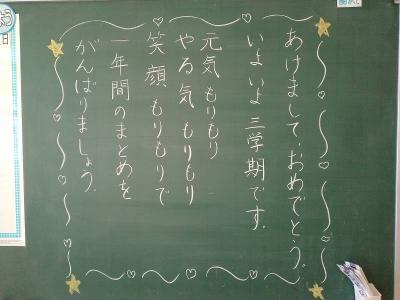 あけまして、おめでとう。
いよいよ三学期です。
元気もりもり
やる気もりもり
笑顔もりもりで
一年間のまとめを
がんばりましょう。